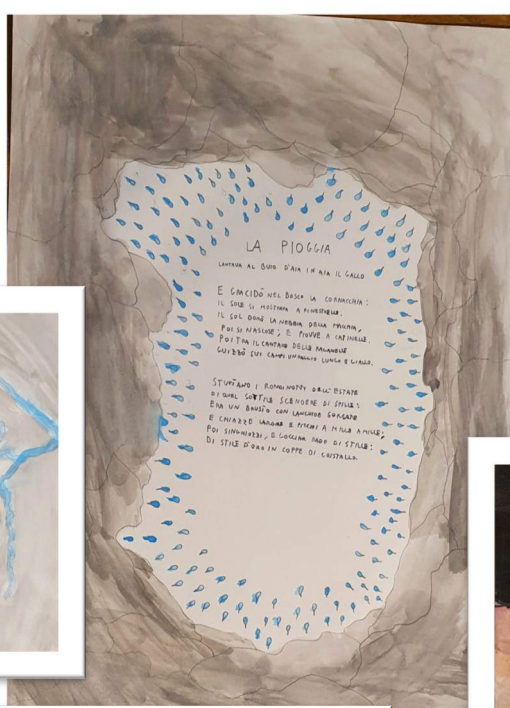 LA PIOGGIA
CANTAVA AL BUIO D'AIA IN AIA IL GALLO
E GRACIDÒ NEL BOSCO LA CORNACCHIA:
IL SOLE SI MOSTRAVA A FINESTRELLE.
IL SOL DORÒ LA NEBBIA DELLA MACCHIA,
POI SI NASCOSE; E PIOVVE A CATINELLE.
POI TRA IL CANTARE DELLE RAGANELLE
GUIZZÒ SUI CAMPI UN RAGGIO LUNGO E GIALLO.
STUPIVANO I RONDINOTTI DELL'ESTATE
DI QUEL SOTTILE SCENDERE DI SPILLE:
ERA UN BRUSÌO CON LANGUIDE SORSATE
E CHIAZZE LARGHE E PICCHI A MILLE A MILLE;
POI SINGHIOZZI, E GOCCIAR RADO DI STILLE:
DI STILLE D'ORO IN COPPE DI CRISTALLO.